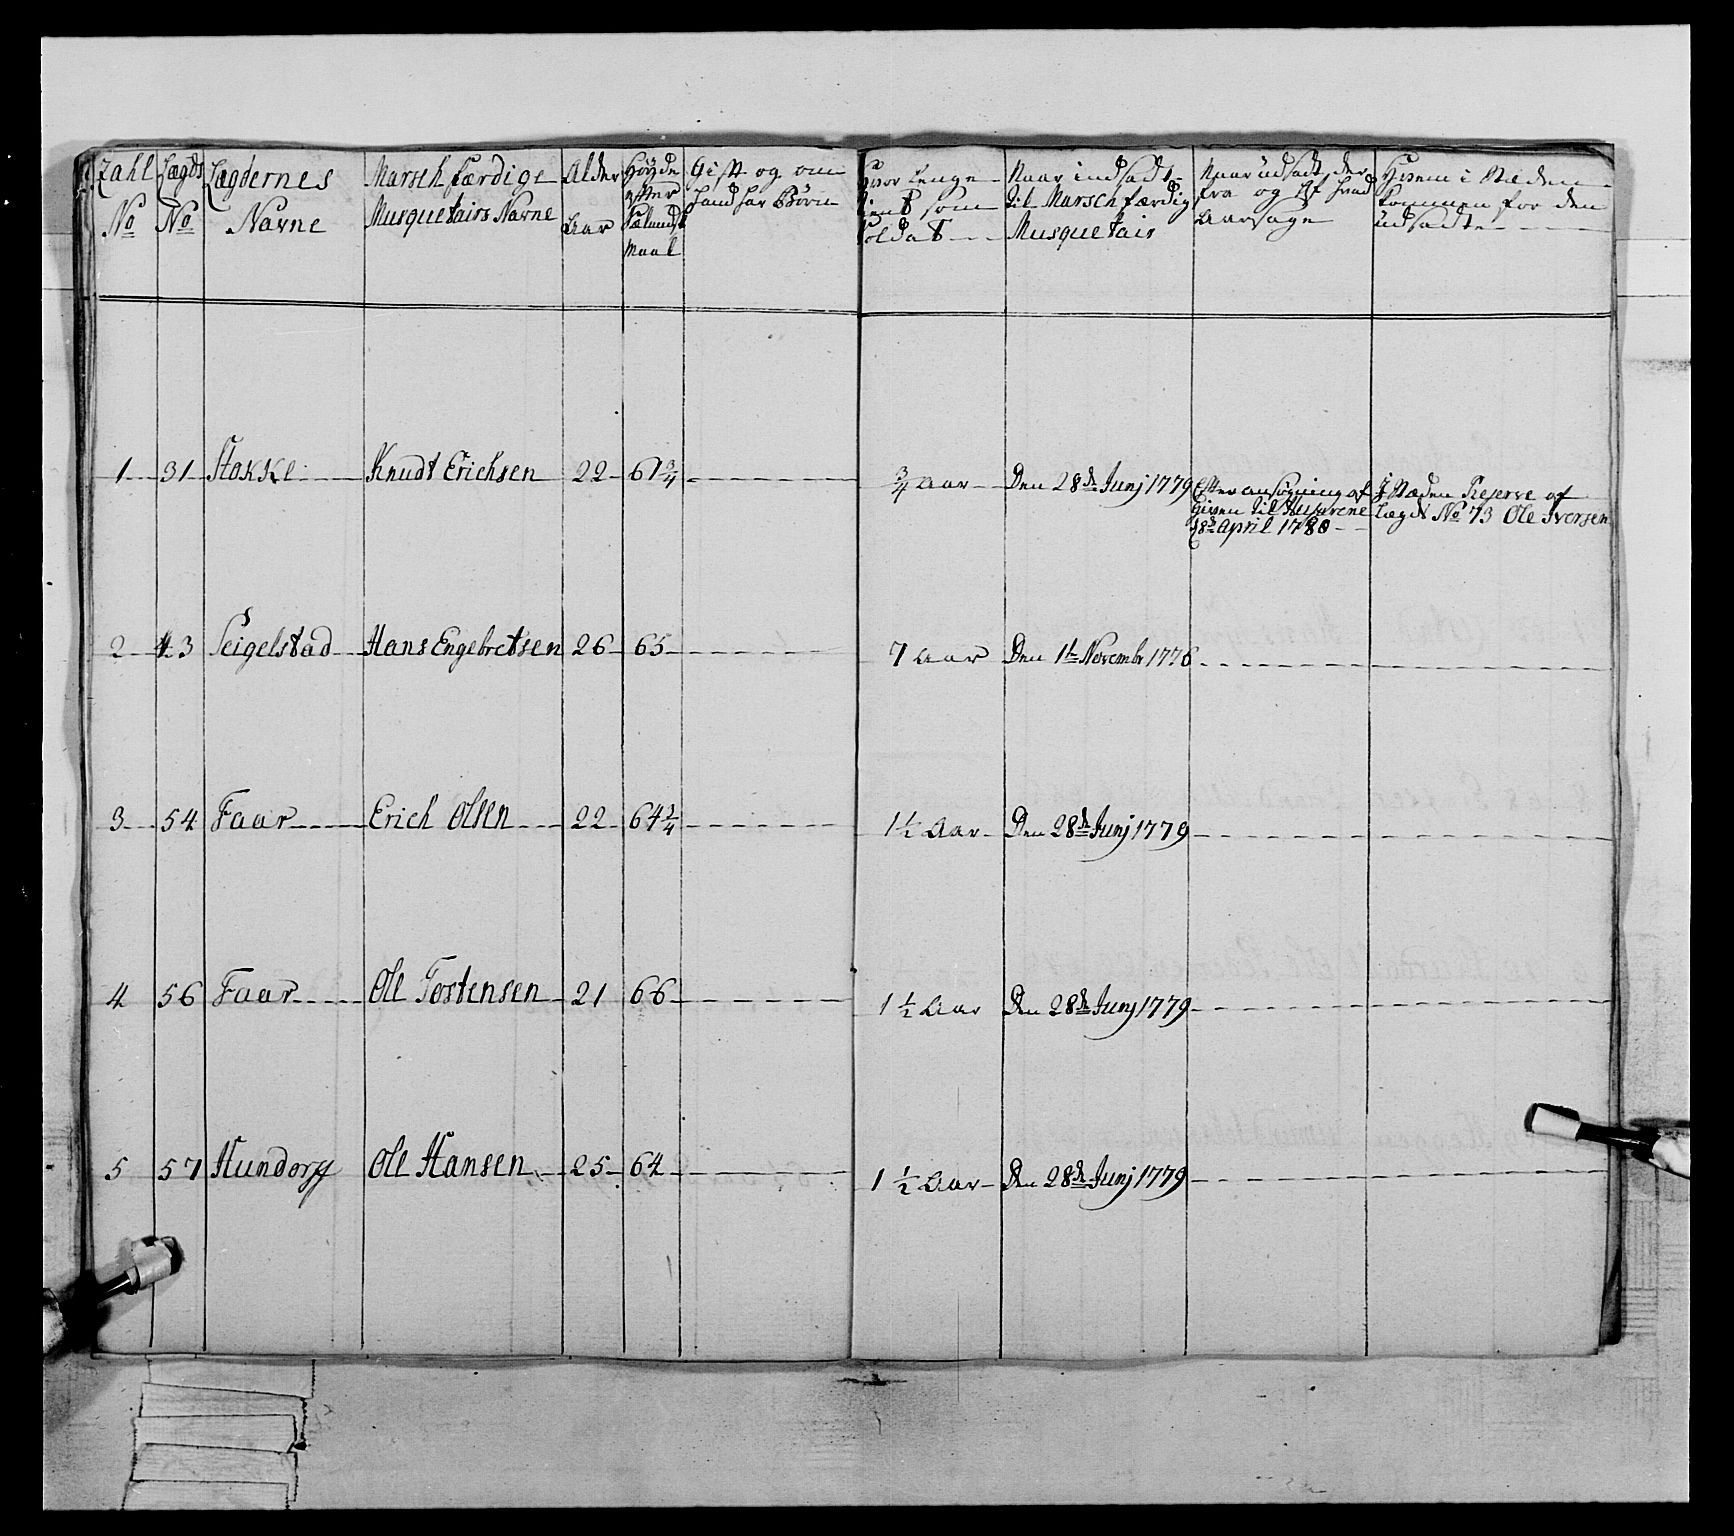 Zahl No
Lægds No
Lægdernes Navne
Marsch færdige Musquetairs Navne
Alder Aar
Høyde efter Sælands Maal
Gift og om hand har Børn
Hvor lenge tient som Soldat
Naar indsadt til Marsch færdig Musquetair
Naar udsadt der fra og af hvad Aarsage
Hvem i Stæden kommen for den udsadte
1 31 Stokke Knudt Erichsen 22 67 3/4 3/4 Aar Den 28de Junj 1779
Efter ansøgning af
Given til Husarene
18de April 1780
J Stæden Reserve af
Lægd No 73 Ole Iversen
2 43 Seigelstad Hans Engebretsen 26 65 7 Aar Den 1te Novembr 1776
3 54 Faar Erich Olsen 22 64 3/4 1 1/2 Aar Den 28de Junj 1779
4 56 Faar Ole Tostensen 21 66 1 1/2 Aar Den 28de Junj 1779
5 57 Hundorp Ole Hansen 25 64 1 1/2 Aar Den 28de Junj 1779